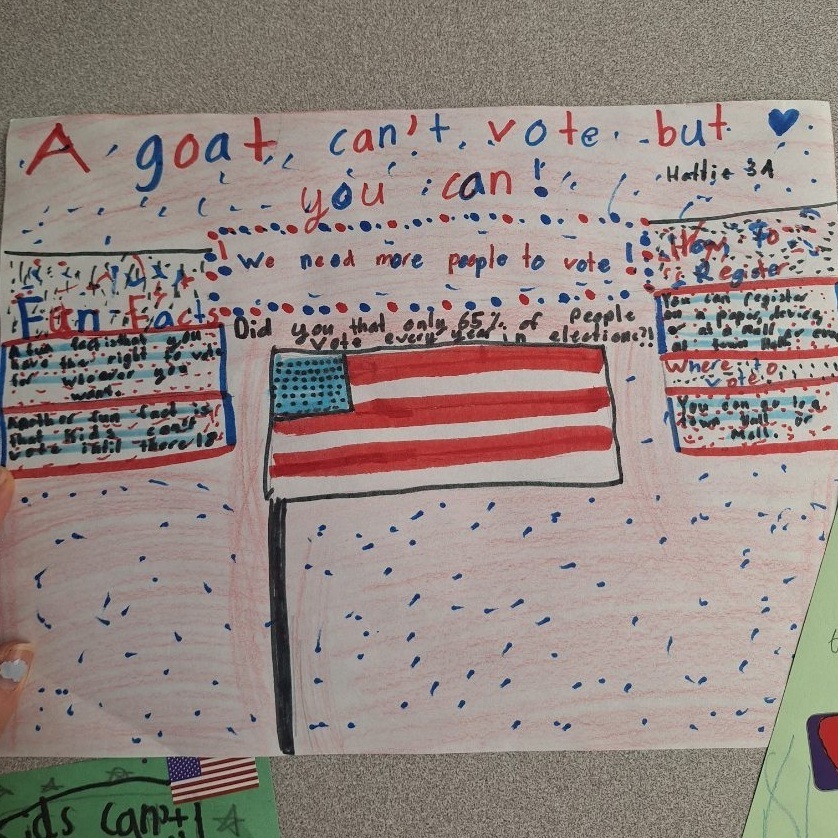 A goat can't vote but
you can!
Hattie 3A
! We need more people to vote !
Did you that only 65% of people
vote every year in elections?!
Fun Facts
A fun fact is that you
have the right to vote
for whoever you
want.
Another fun fact is
that kids can't
vote until there 18
How to
Register
You can register
on a paper, device,
or at a mall or
at town hall
Where to
vote
You can go to a
town hall or
Mall.
ids can't